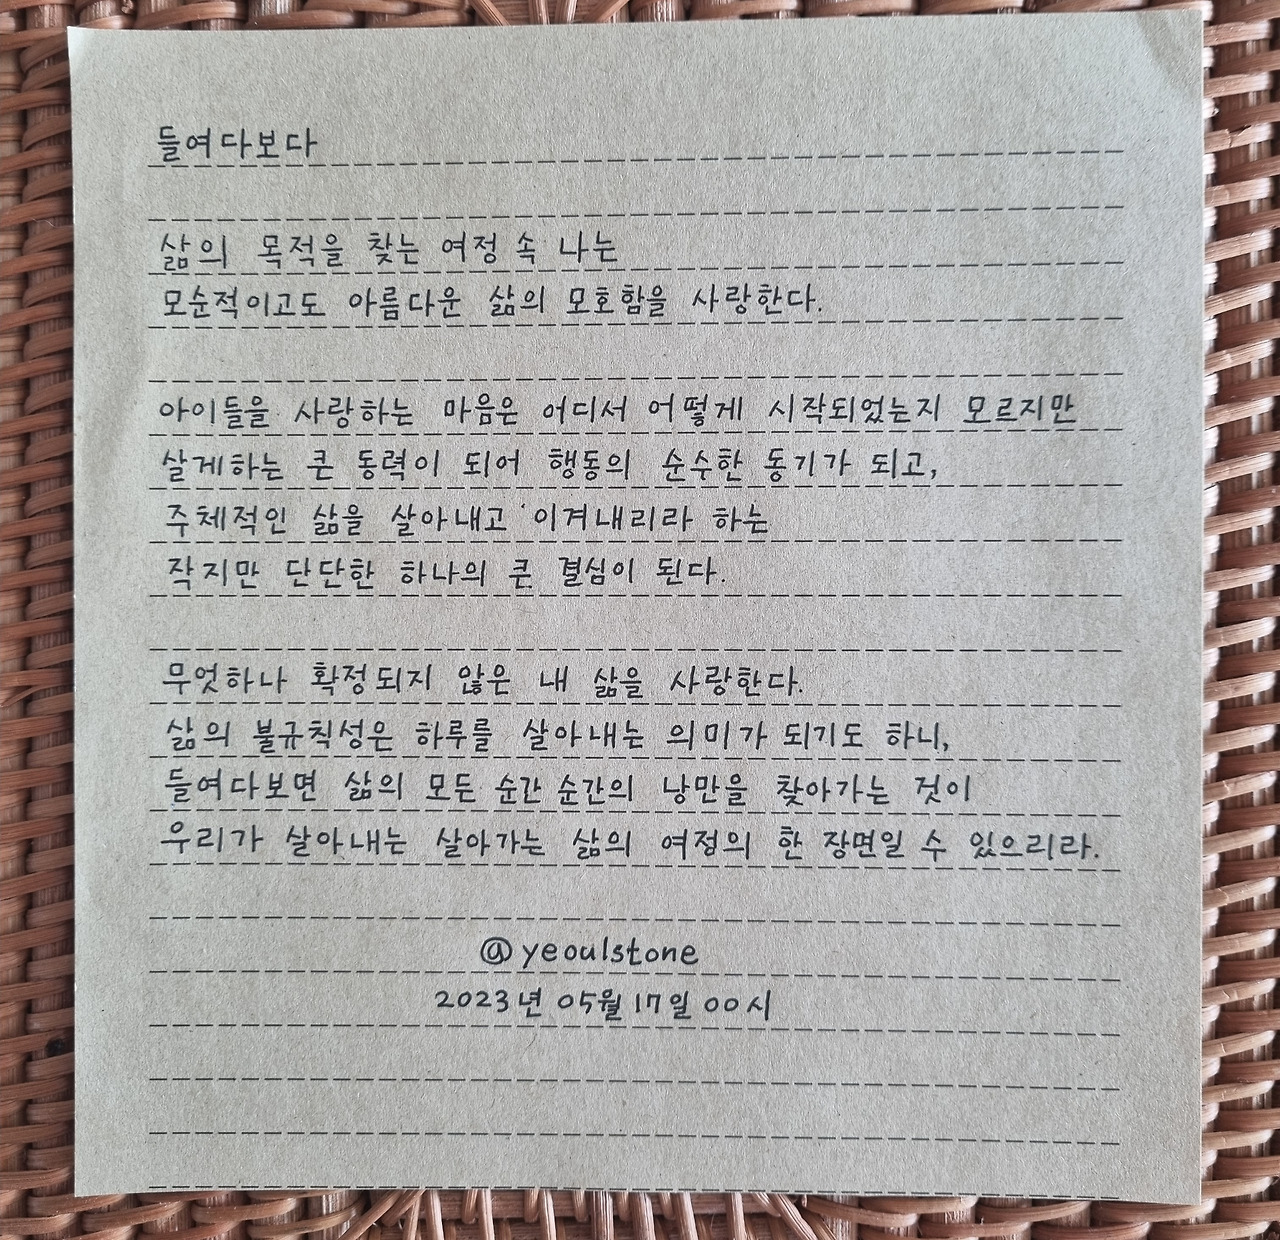 들여다보다
삶의 목적을 찾는 여정 속 나는
모순적이고도 아름다운 삶의 모호함을 사랑한다.
아이들을 사랑하는 마음은 어디서 어떻게 시작되었는지 모르지만
살게하는 큰 동력이 되어 행동의 순수한 동기가 되고,
주체적인 삶을 살아내고 이겨내리라 하는
작지만 단단한 하나의 큰 결심이 된다.
무엇하나 확정되지 않은 내 삶을 사랑한다.
삶의 불규칙성은 하루를 살아내는 의미가 되기도 하니,
들여다보면 삶의 모든 순간 순간의 낭만을 찾아가는 것이
우리가 살아내는 살아가는 삶의 여정의 한 장면일 수 있으리라.
@yeoulstone
2023년 05월 17일 00시